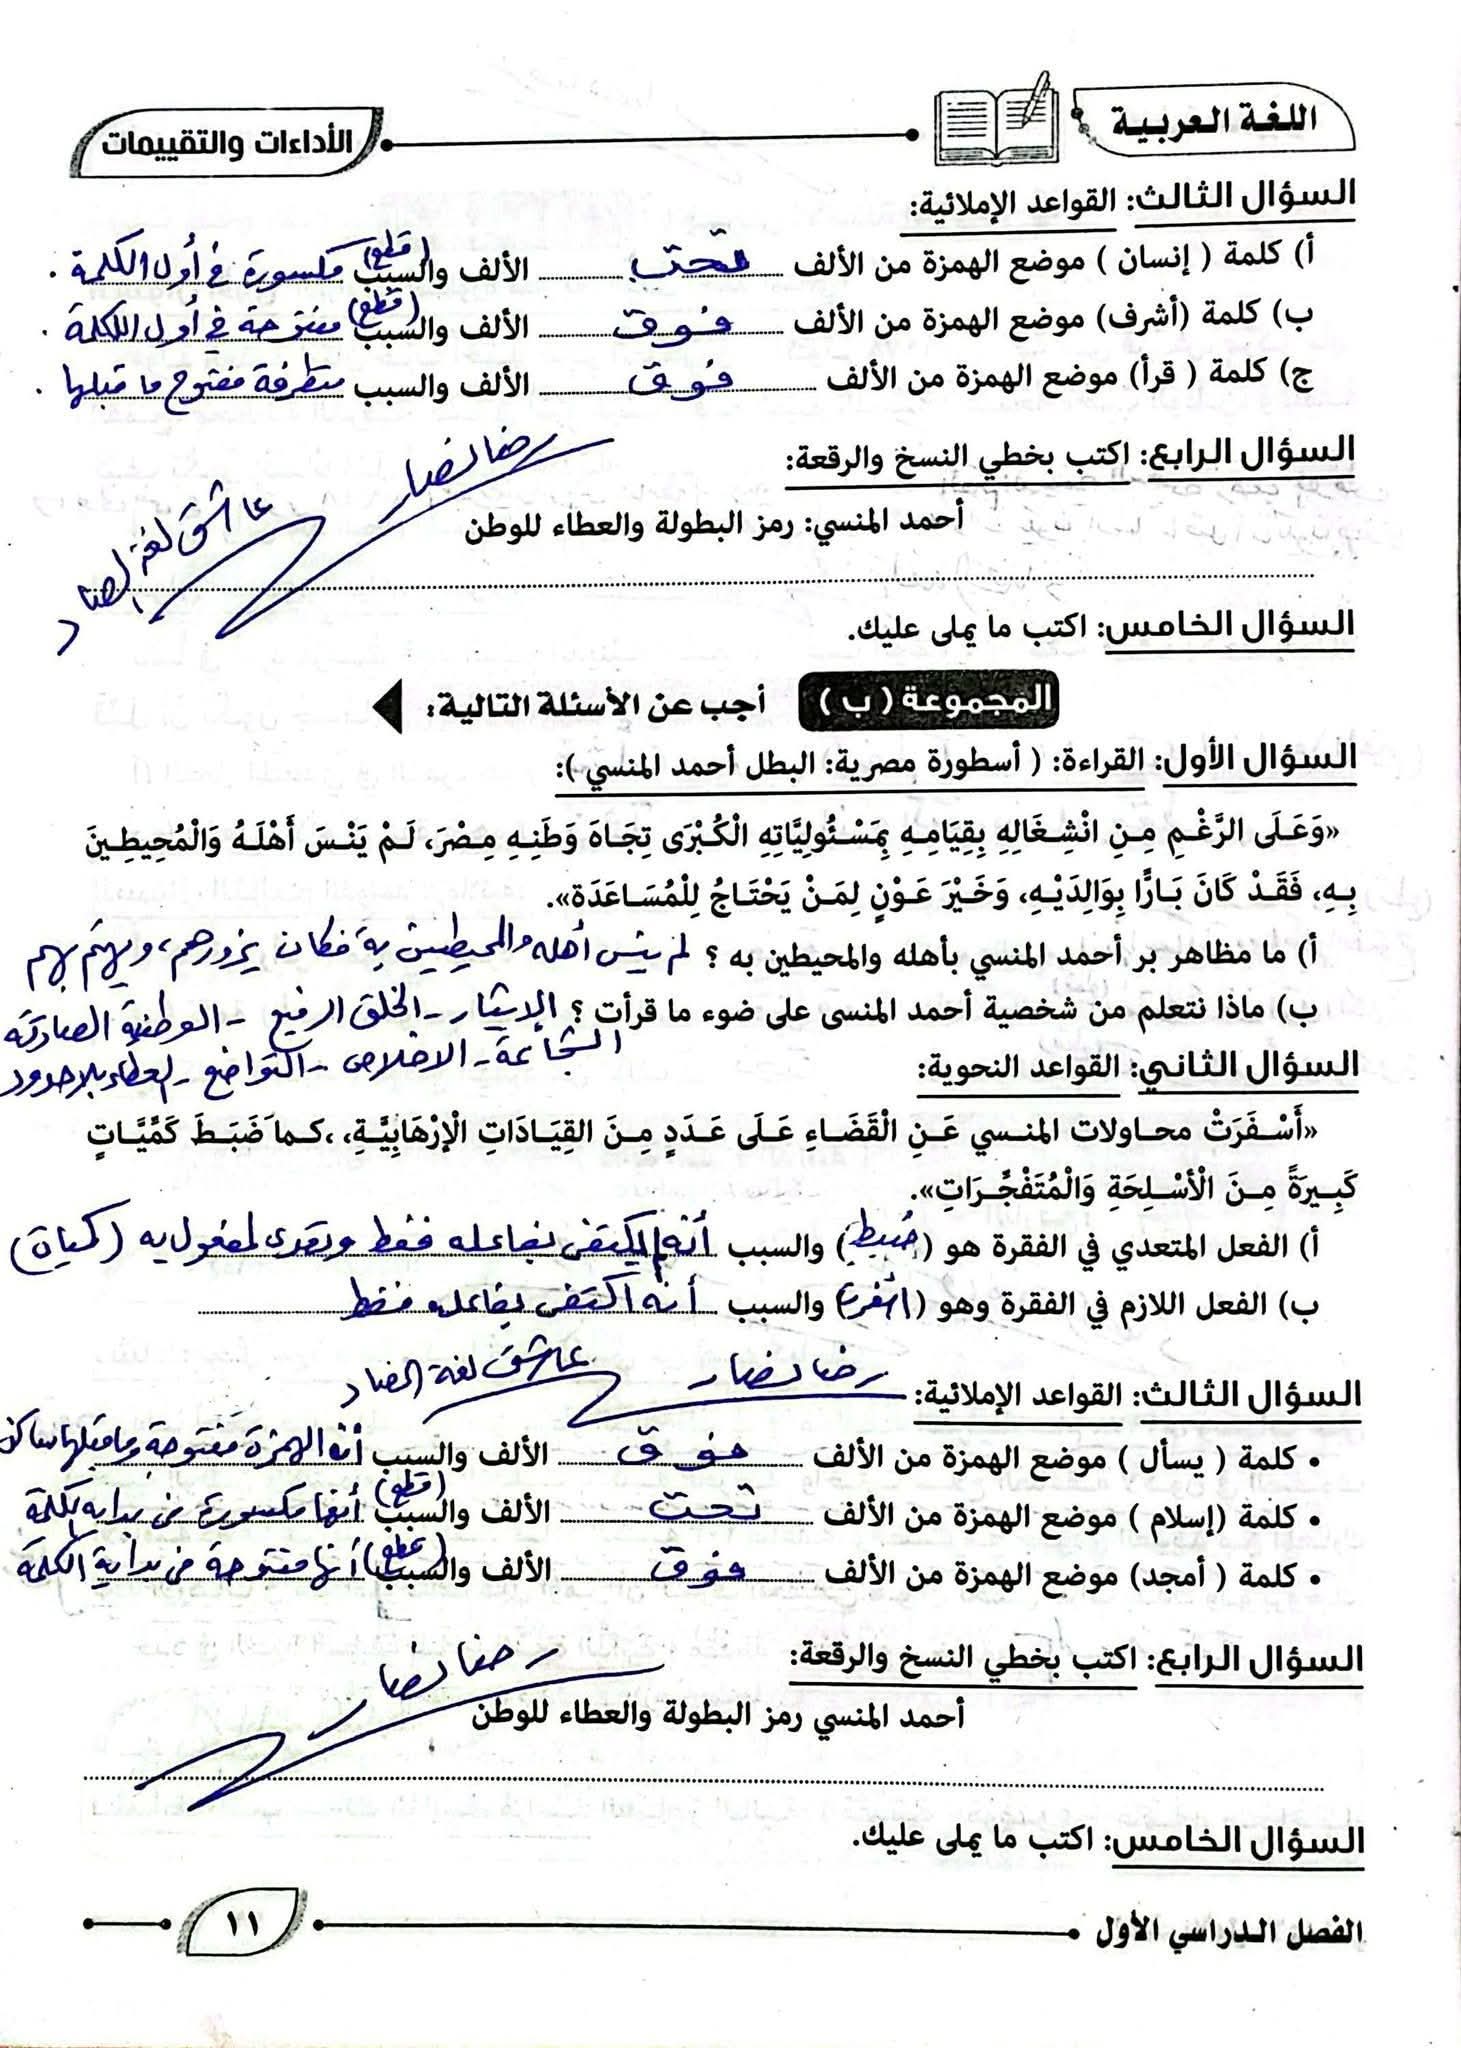 اللغة العربية
الأداءات والتقييمات
السؤال الثالث: القواعد الإملائية:
أ) كلمة ( إنسان ) موضع الهمزة من الألف تحت الألف والسبب (قطع) مكسورة في أول الكلمة .
ب) كلمة (أشرف) موضع الهمزة من الألف فوق الألف والسبب (قطع) مفتوحة في أول الكلمة .
ج) كلمة ( قرأ) موضع الهمزة من الألف فوق الألف والسبب متطرفة مفتوح ما قبلها .
السؤال الرابع: اكتب بخطي النسخ والرقعة:
رضا نصار
عاشق لغة الضاد
أحمد المنسي: رمز البطولة والعطاء للوطن
السؤال الخامس: اكتب ما يملى عليك.
المجموعة ( ب ) أجب عن الأسئلة التالية:
السؤال الأول: القراءة: ( أسطورة مصرية: البطل أحمد المنسي ):
«وَعَلَى الرَّغْمِ مِنِ انْشِغَالِهِ بِقِيَامِهِ بِمَسْئُولِيَّاتِهِ الْكُبْرَى تِجَاهَ وَطَنِهِ مِصْرَ، لَمْ يَنْسَ أَهْلَهُ وَالْمُحِيطِينَ
بِهِ، فَقَدْ كَانَ بَارًّا بِوَالِدَيْهِ، وَخَيْرَ عَوْنٍ لِمَنْ يَحْتَاجُ لِلْمُسَاعَدَة».
أ) ما مظاهر بر أحمد المنسي بأهله والمحيطين به ؟ لم ينس أهله والمحيطين به فكان يزورهم، ويهتم بهم
ب) ماذا نتعلم من شخصية أحمد المنسى على ضوء ما قرأت ؟ الإيثار - الخلق الرفيع - الوطنية الصادقة
الشجاعة - الاخلاص - التواضع - العطاء بلا حدود
السؤال الثاني: القواعد النحوية:
«أَسْفَرَتْ محاولات المنسي عَنِ الْقَضَاءِ عَلَى عَدَدٍ مِنَ القِيَادَاتِ الْإِرْهَابِيَّةِ، ،كَمـا ضَبَطَ كَمِّيَّاتٍ
كَبِيرَةً مِنَ الْأَسْلِحَةِ وَالْمُتَفْجِّرَاتِ».
أ) الفعل المتعدي في الفقرة هو (ضبط) والسبب أنه لم يكتفى بفاعله فقط وتعدى لمفعول به (كميات)
ب) الفعل اللازم في الفقرة وهو (اسفرت) والسبب أنه اكتفى بفاعله فقط
رضا نصار عاشق لغة الضاد
السؤال الثالث: القواعد الإملائية:
• كلمة ( يسأل ) موضع الهمزة من الألف فوق الألف والسبب أنه الهمزة مفتوحة وما قبلها ساكن
• كلمة (إسلام ) موضع الهمزة من الألف تحت الألف والسبب (قطع) أنها مكسورة في بداية الكلمة
• كلمة ( أمجد) موضع الهمزة من الألف فوق الألف والسبب (قطع) أنها مفتوحة في بداية الكلمة
السؤال الرابع: اكتب بخطي النسخ والرقعة:
رضا نصار
أحمد المنسي رمز البطولة والعطاء للوطن
السؤال الخامس: اكتب ما يملى عليك.
الفصل الدراسي الأول
١١